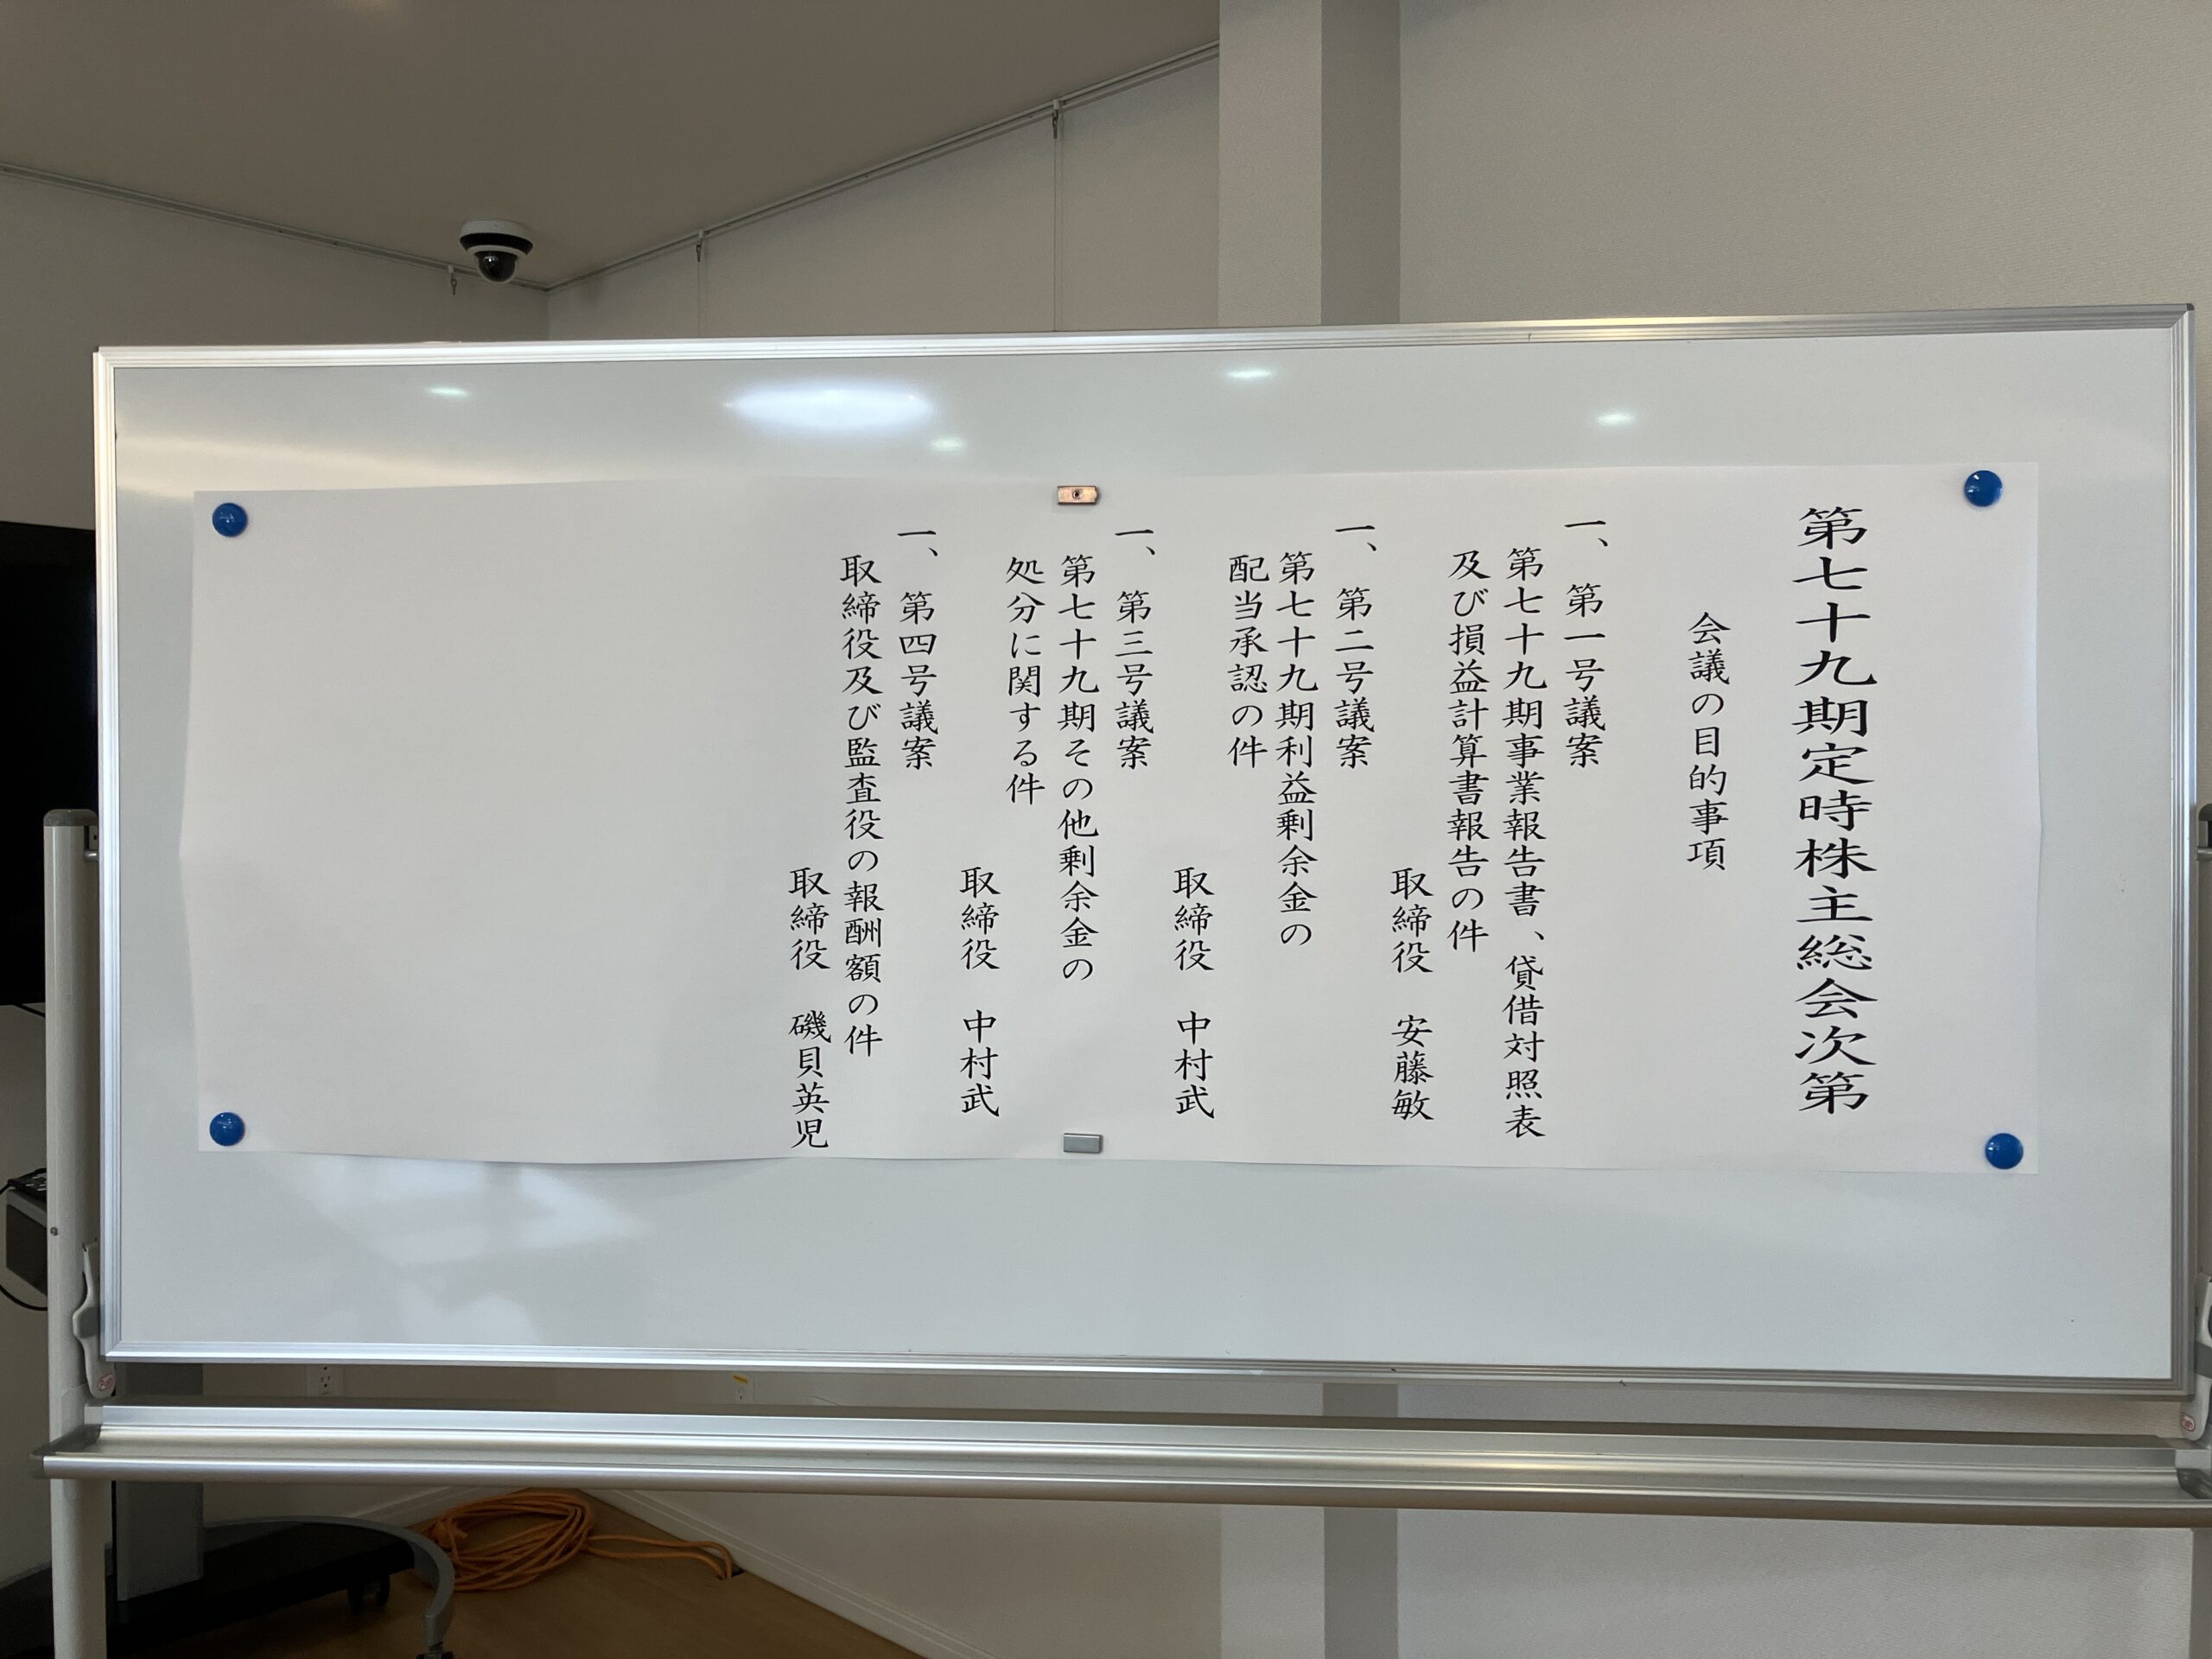 第七十九期定時株主総会次第
会議の目的事項
一、第一号議案
第七十九期事業報告書、貸借対照表
及び損益計算書報告の件
取締役　安藤敏
一、第二号議案
第七十九期利益剰余金の
配当承認の件
取締役　中村武
一、第三号議案
第七十九期その他剰余金の
処分に関する件
取締役　中村武
一、第四号議案
取締役及び監査役の報酬額の件
取締役　磯貝英児